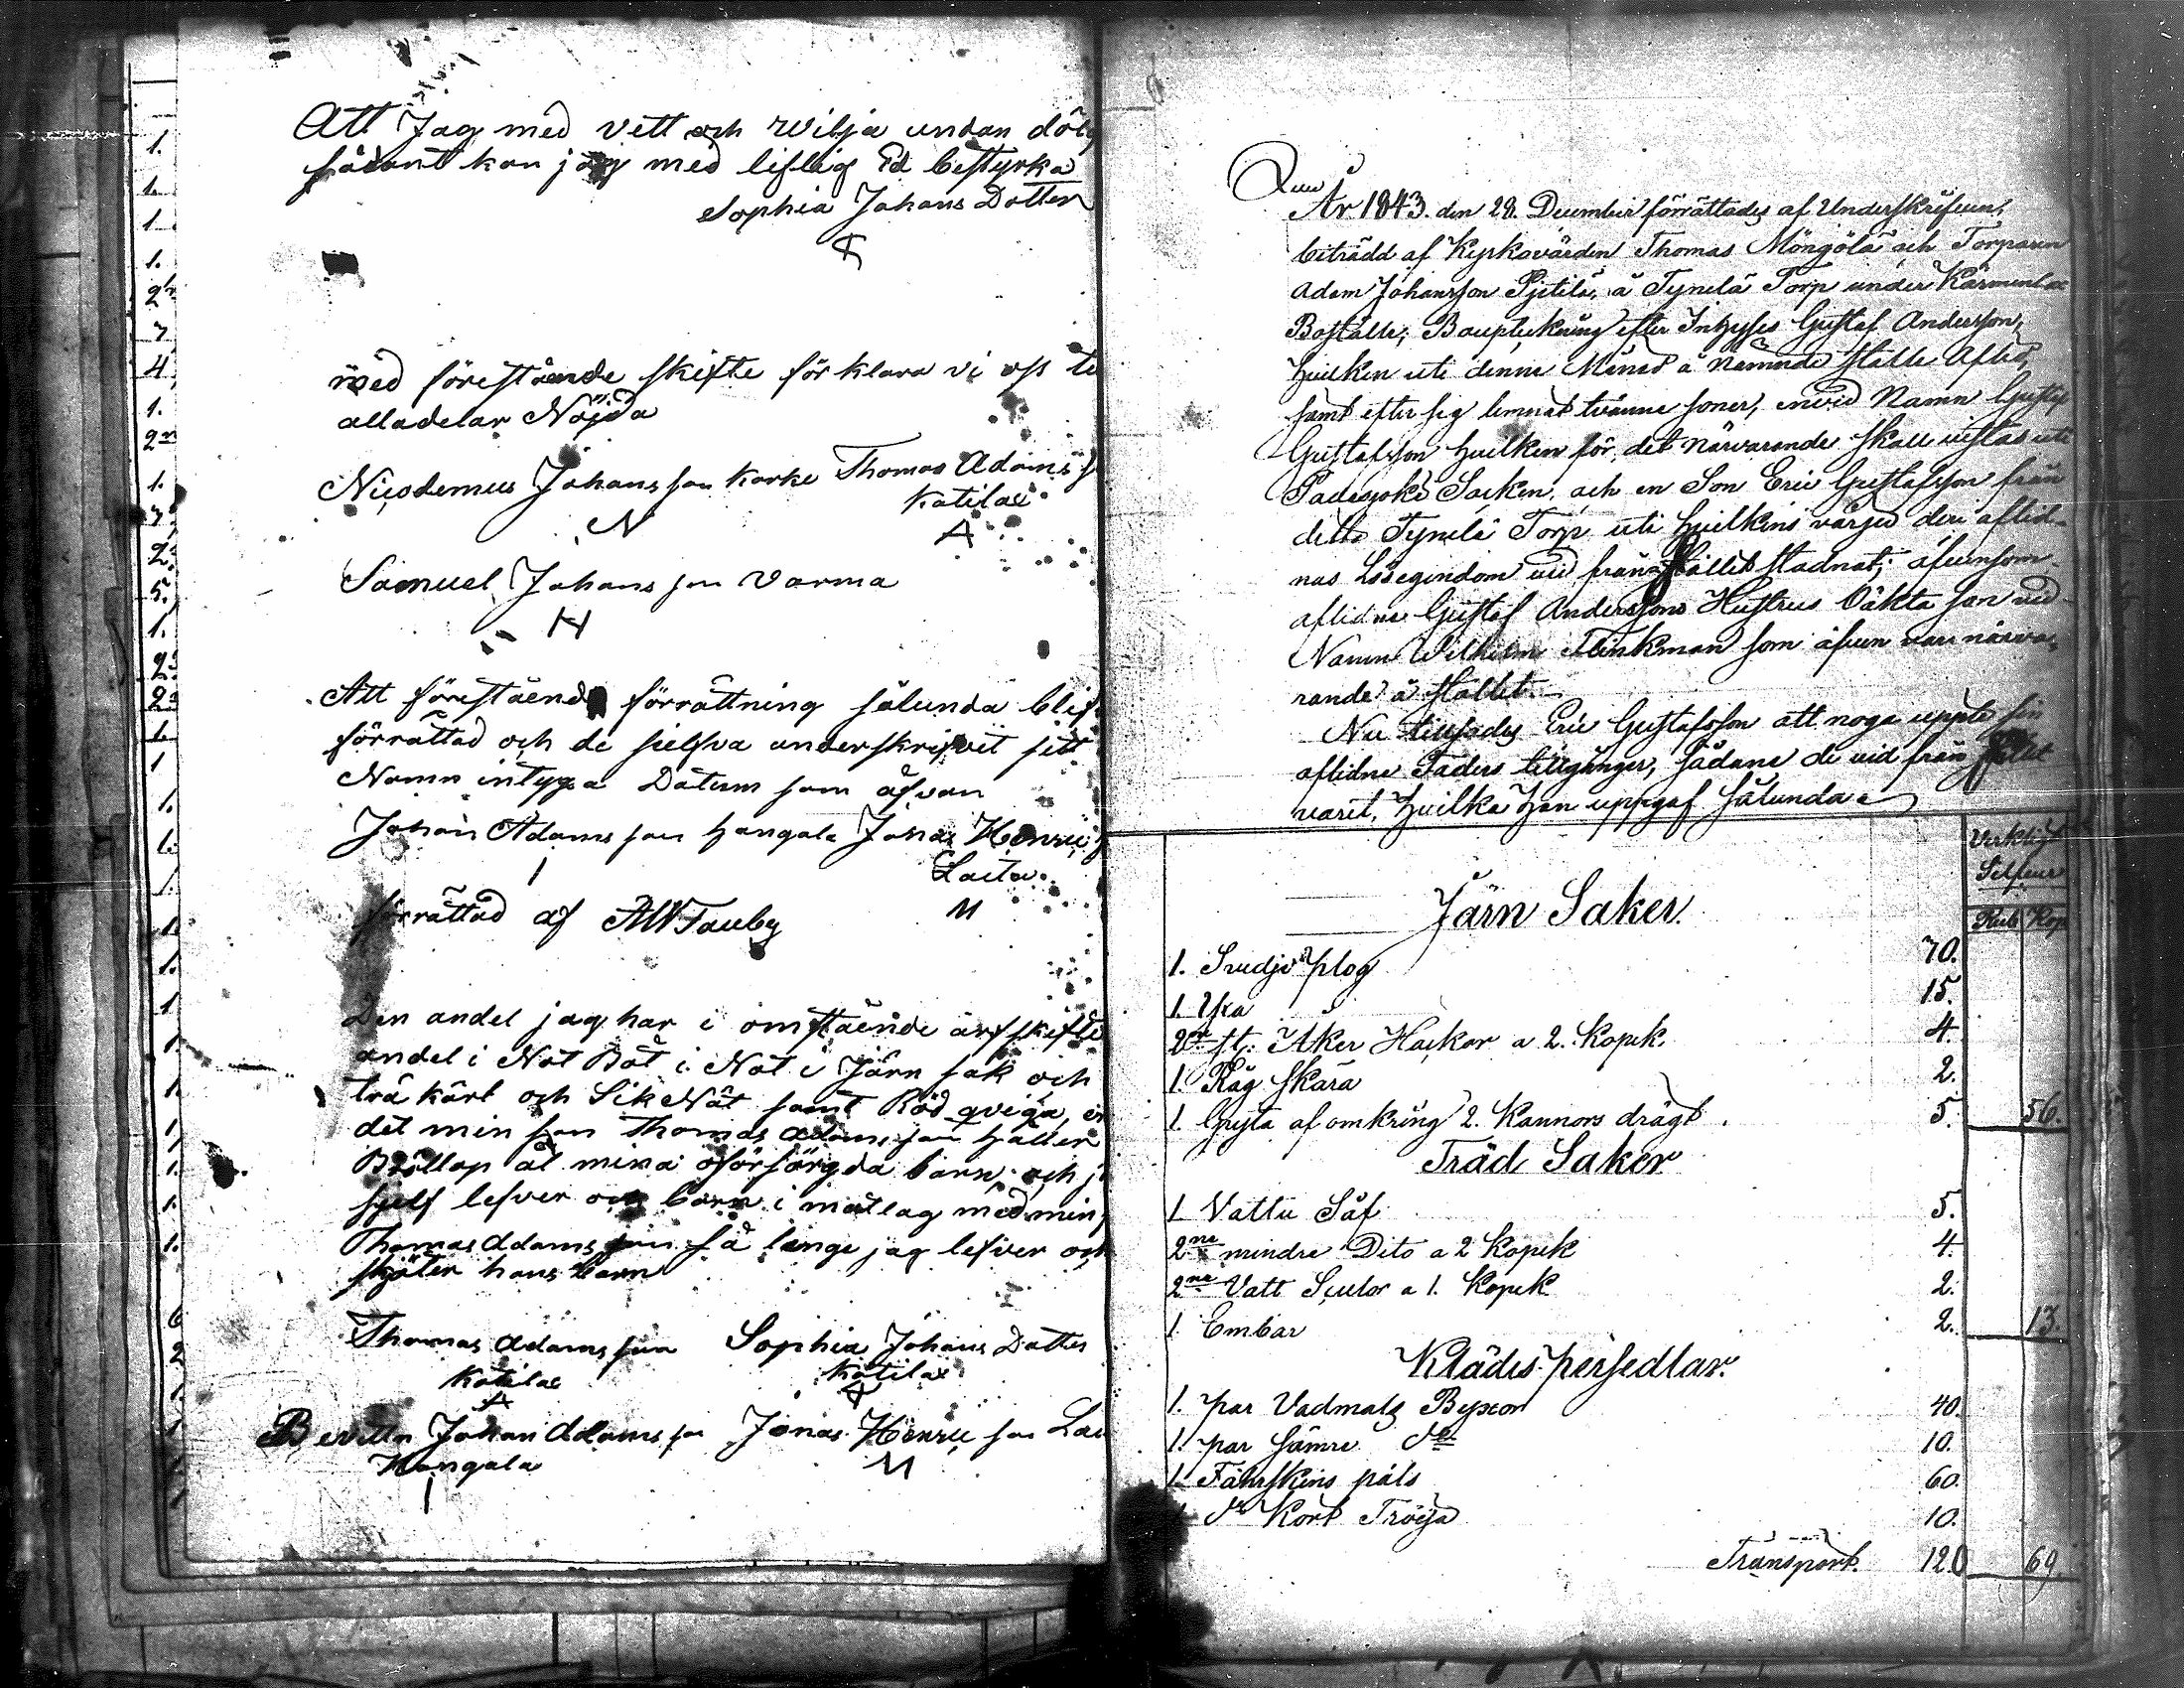 Att Jag med vett och wilja undan döl
sådant kan jag med liflig Ed bestyrka
Sophia Johans Dotter
med förestående skifte förklara vi oss te
alladelar Nöjda
Nicodemus Johansson Korke Thomas Adams
Katilax
N A
Samuel Johansson Varma
H
Att förestående förrättning sålunda blif
förrättad och de sielfva underskrifvit sitt
Namn intyga Datum som åfvan
Johan Adamsson Hangala Jonas Henric
Laita
M
förrättad af
Den andel jag har i omstående arfskifte
andel i Not Båt i Nät i Järn sak och
trä kärl och Sik Nät samt Röd qviga
det min son Thomas Adamsson håller
Bröllop åt mina oförsörgda barn och j
sjelf lefver och barn i matlag med min
Thomas Adamsson så länge jag lefver och
sköter hans barn
Thomas Adamsson Sophia Johans Dotter
Katilax Katilax
Bevittn Johan Adamsson Jonas Henricsson Lai
Hangala M
År 1843. den 28. December förrättades af Underskrifven,
biträdd af Kyrkovärden Thomas Möngölä och Torparen
Adam Johansson Pjetilä, å Tynilä Torp under
Boställe, Bouptekning efter Inhyses Gustaf Andersson,
hvilken uti denne Månad å nämnde ställe Afled,
samt efter sig lemnat tvänne söner, en vid Namn Gustaf
Gustafsson hvilken för det närvarande skall vistas uti
Padasjoki Socken, och en Son Eric Gustafsson från
detto Tynilä Torp uti hvilkens värjo den aflid-
nas Lösegendom vid frånfället stadnat; äfvensom
aflidne Gustaf Anderssons Hustrus Oäkta son vid
Namn Wilhelm Flinkman som äfven var närva-
rande å stället.
Nu tillsades Eric Gustafsson att noga uppte sin
aflidne Faders tillgångar, sådane de vid frånfället
varit, hvilka han uppgaf sålunda
Silfver
Rub Kop
Järn Saker
1. plog 70.
1. Yxa 15.
2ne st. Åker Hackor a 2. Kopek. 4.
1. Råg Skära 2.
1. Gryta af omkring 2. Kannors drägt. 5. 56.
Träd Saker
1 Vattu Såf 5.
2ne mindre Dito a 2 Kopek 4.
2ne Vatt Scutor a 1. Kopek 2.
1. Embar 2. 13.
Klädes persedlar.
1. par Vadmals Byxor 40.
1. par sämre do 10.
1. Fåhrskins päls 60.
1 do Kort Tröija 10.
Transport. 120 69.